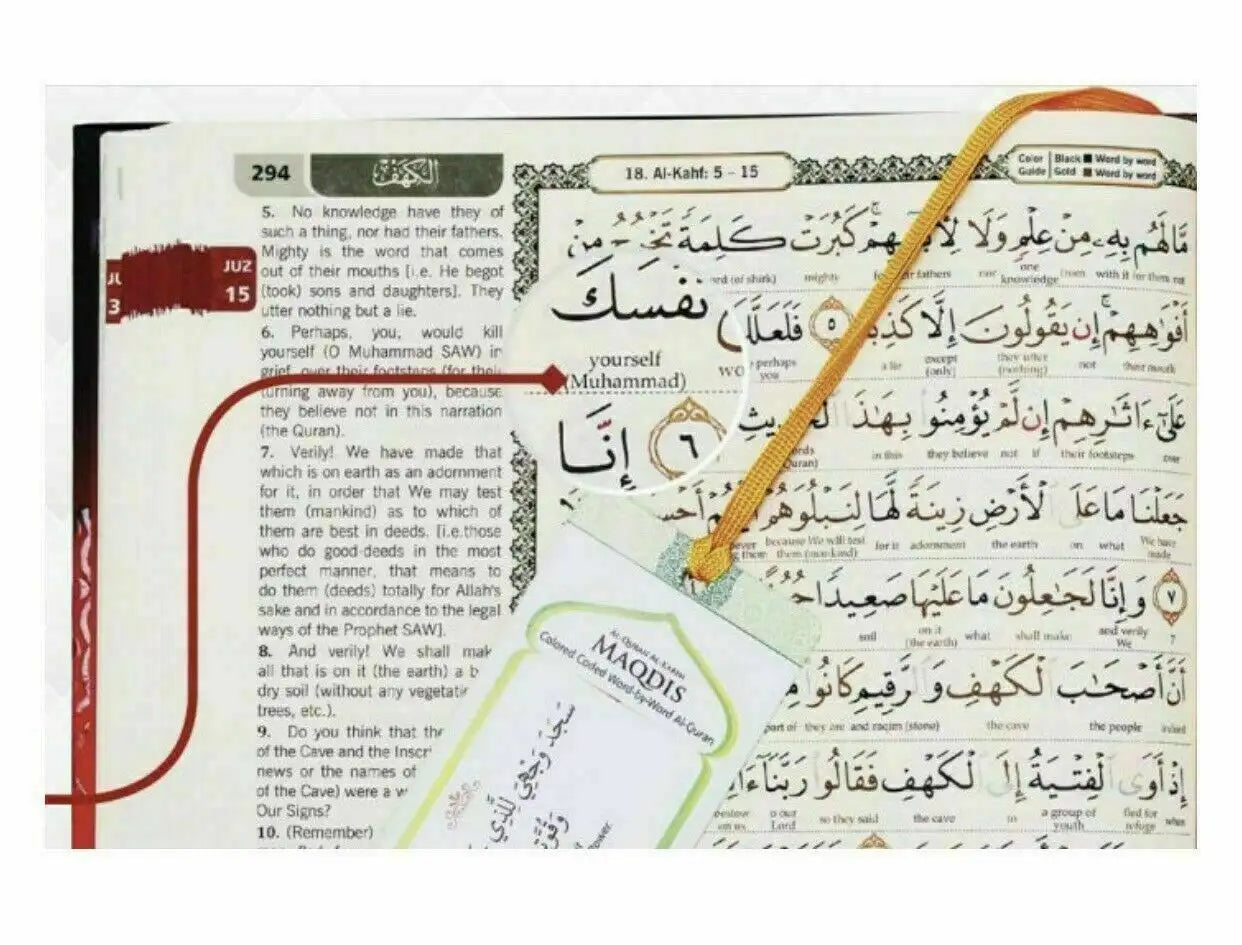 294
الكهف
18. Al-Kahf: 5 - 15
Color Guide
Black Word by word
Gold Word by word
JUZ
15
5. No knowledge have they of
such a thing, nor had their fathers.
Mighty is the word that comes
out of their mouths [i.e. He begot
(took) sons and daughters]. They
utter nothing but a lie.
6. Perhaps, you, would kill
yourself (O Muhammad SAW) in
grief, over their footsteps (for their
turning away from you), because
they believe not in this narration
(the Quran).
7. Verily! We have made that
which is on earth as an adornment
for it, in order that We may test
them (mankind) as to which of
them are best in deeds. [i.e.those
who do good deeds in the most
perfect manner, that means to
do them (deeds) totally for Allah's
sake and in accordance to the legal
ways of the Prophet SAW].
8. And verily! We shall mak
all that is on it (the earth) a b
dry soil (without any vegetatir
trees, etc.).
9. Do you think that the
of the Cave and the Inscri
news or the names of
of the Cave) were a w
Our Signs?
10. (Remember)
مَّا لَهُم بِهِۦ مِنْ عِلْمٍ وَلَا لِآبَائِهِمْ كَبُرَتْ كَلِمَةً تَخْرُجُ مِنْ
(of shirk) mighty fathers nor knowledge from with it for them
أَفْوَٰهِهِمْ إِن يَقُولُونَ إِلَّا كَذِبًا ٥ فَلَعَلَّكَ
نفسك
perhaps you a lie except (only) they utter (nothing) not their mouth
yourself
(Muhammad)
عَلَىٰٓ ءَاثَٰرِهِمْ إِن لَّمْ يُؤْمِنُوا۟ بِهَٰذَا ٱلْحَدِيثِ
٦ إِنَّا
in this they believe not if their footsteps over
جَعَلْنَا مَا عَلَى ٱلْأَرْضِ زِينَةً لَّهَا لِنَبْلُوَهُمْ أَيُّهُمْ أَحْسَ
because We will test them (mankind) for it adornment the earth on what We have made
٧ وَإِنَّا لَجَٰعِلُونَ مَا عَلَيْهَا صَعِيدًا
soil on it (the earth) what shall make and verily We 7
أَنَّ أَصْحَٰبَ ٱلْكَهْفِ وَٱلرَّقِيمِ كَانُوا۟
part of they are and raqim (stone) the cave the people
إِذْ أَوَى ٱلْفِتْيَةُ إِلَى ٱلْكَهْفِ فَقَالُوا۟ رَبَّنَآ
bestow on us o our Lord so they said the cave to a group of youth fled for refuge when
AL-QURAN AL-KARIM
MAQDIS
Colored Coded Word-by-Word Al-Quran
سَجَدَ وَجْهِيَ لِلَّذِي